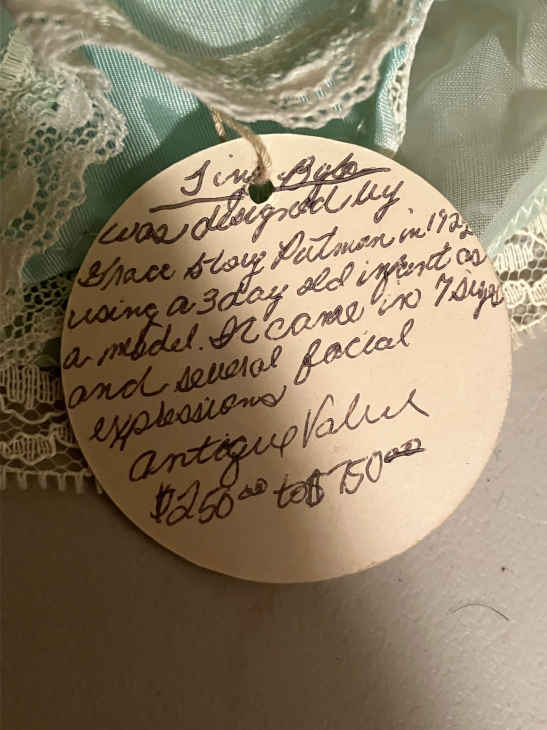 Tiny Babe
was designed by
Grace Story Putman in 1922
using a 3 day old infant as
a model. It came in 7 sizes
and several facial
expressions
antique Value
$250.00 to $750.00